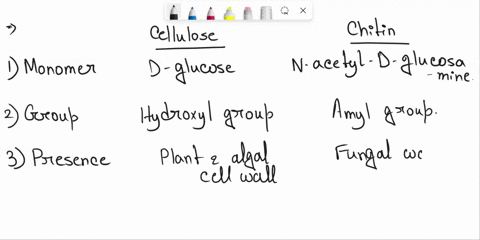 → Cellulose Chitin
1) Monomer D-glucose N-acetyl-D-glucosa
-mine.
2) Group Hydroxyl group Amyl group.
3) Presence Plant & algal Fungal wc
cell wall